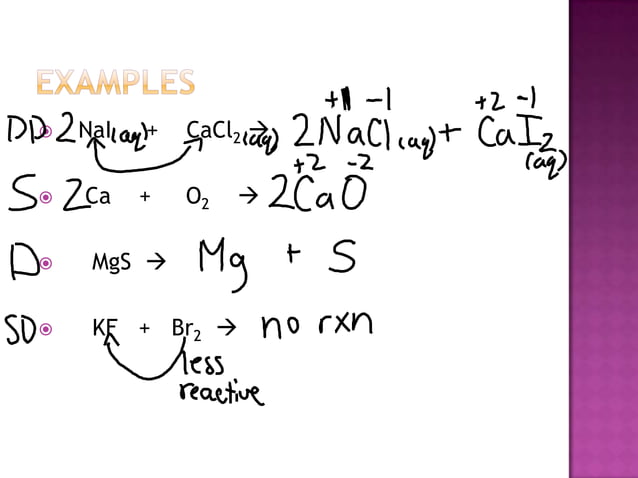 EXAMPLES
+1 -1 +2 -1
DD 2NaI(aq) + CaCl2(aq) → 2NaCl(aq) + CaI2(aq)
+2 -2
S 2Ca + O2 → 2CaO
D MgS → Mg + S
SD KF + Br2 → no rxn
less
reactive